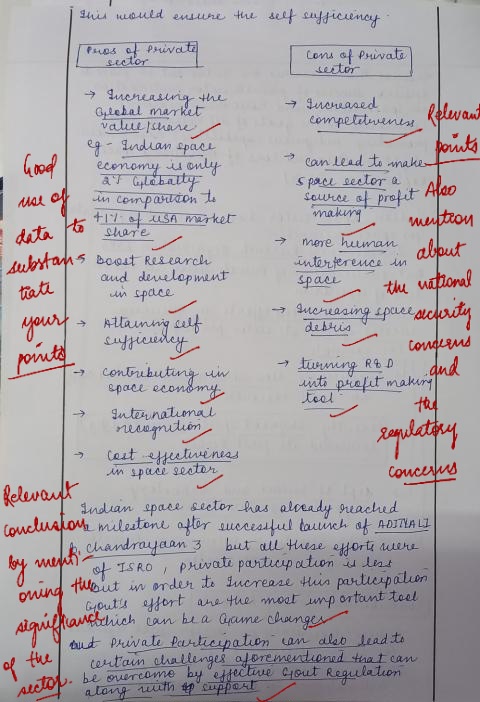 This would ensure the self sufficiency.
Pros of Private
sector
→ Increasing the
Global market
value/share
eg - Indian space
economy is only
2% Globally
in comparison to
41% of USA market
share
→ Boost Research
and development
in space
→ Attaining self
sufficiency
→ contributing in
space economy
→ International
recognition
→ Cost effectiveness
in space sector
Cons of Private
sector
→ Increased
competetiveness
→ can lead to make
space sector a
source of profit
making
→ more human
interference in
space
→ Increasing space
debris
→ turning R&D
into profit making
tool
Good
use of
data to
substan
tiate
your
points
Relevant
points
Also
mention
about
the national
security
concerns
and
the
regulatory
concerns
Indian space sector has already reached
a milestone after successful launch of ADITYA L1
& chandrayaan 3 but all these efforts were
of ISRO, private participation is less
but in order to Increase this participation
Govt's effort are the most important tool
which can be a Game changer
But Private Participation can also lead to
certain challenges aforementioned that can
be overcome by effective Govt Regulation
along with support.
Relevant
conclusion
by menti
oning the
significance
of the
sector.